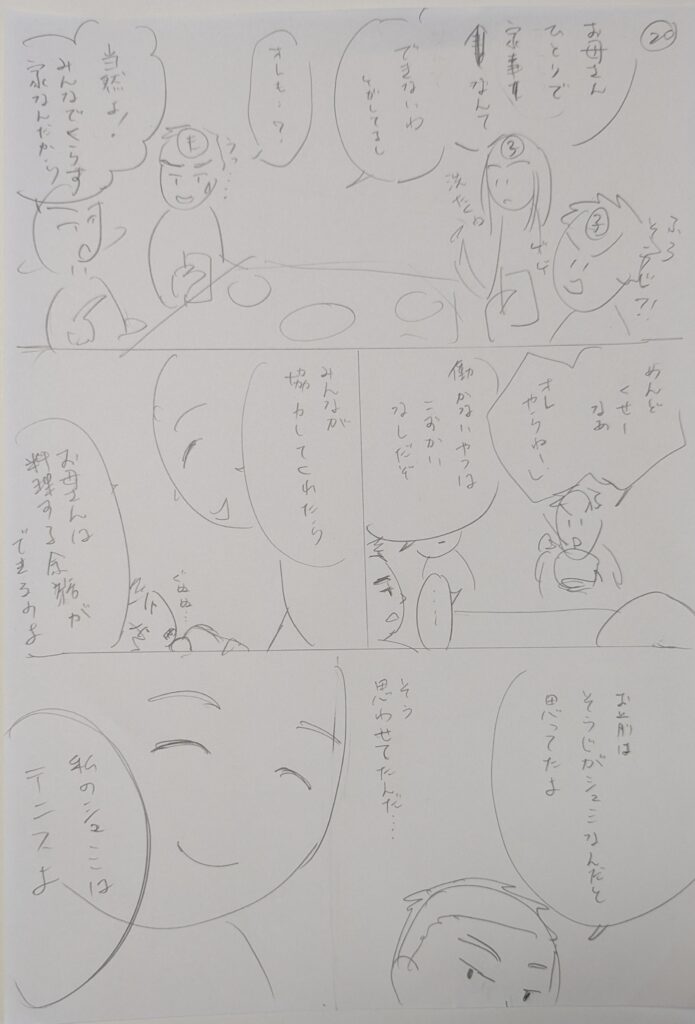 20
お母さん
ひとりで
家事
なんて
できないわ
ケガしてるし
オレも…?
うっ…
当然よ!
みんなでくらす
家なんだから
洗たく。
ゲゲ
ふろ
そうじ?!
3
子
めんど
くせー
なあ
オレ
やらねーし
働かないやつは
こづかい
なしだぞ
…
みんなが
協力してくれたら
ぐぬぬ…
お母さんは
料理する余裕が
できるのよ
お前は
そうじがシュミなんだと
思ってたよ
そう
思わせてたんだ…
私のシュミは
テニスよ